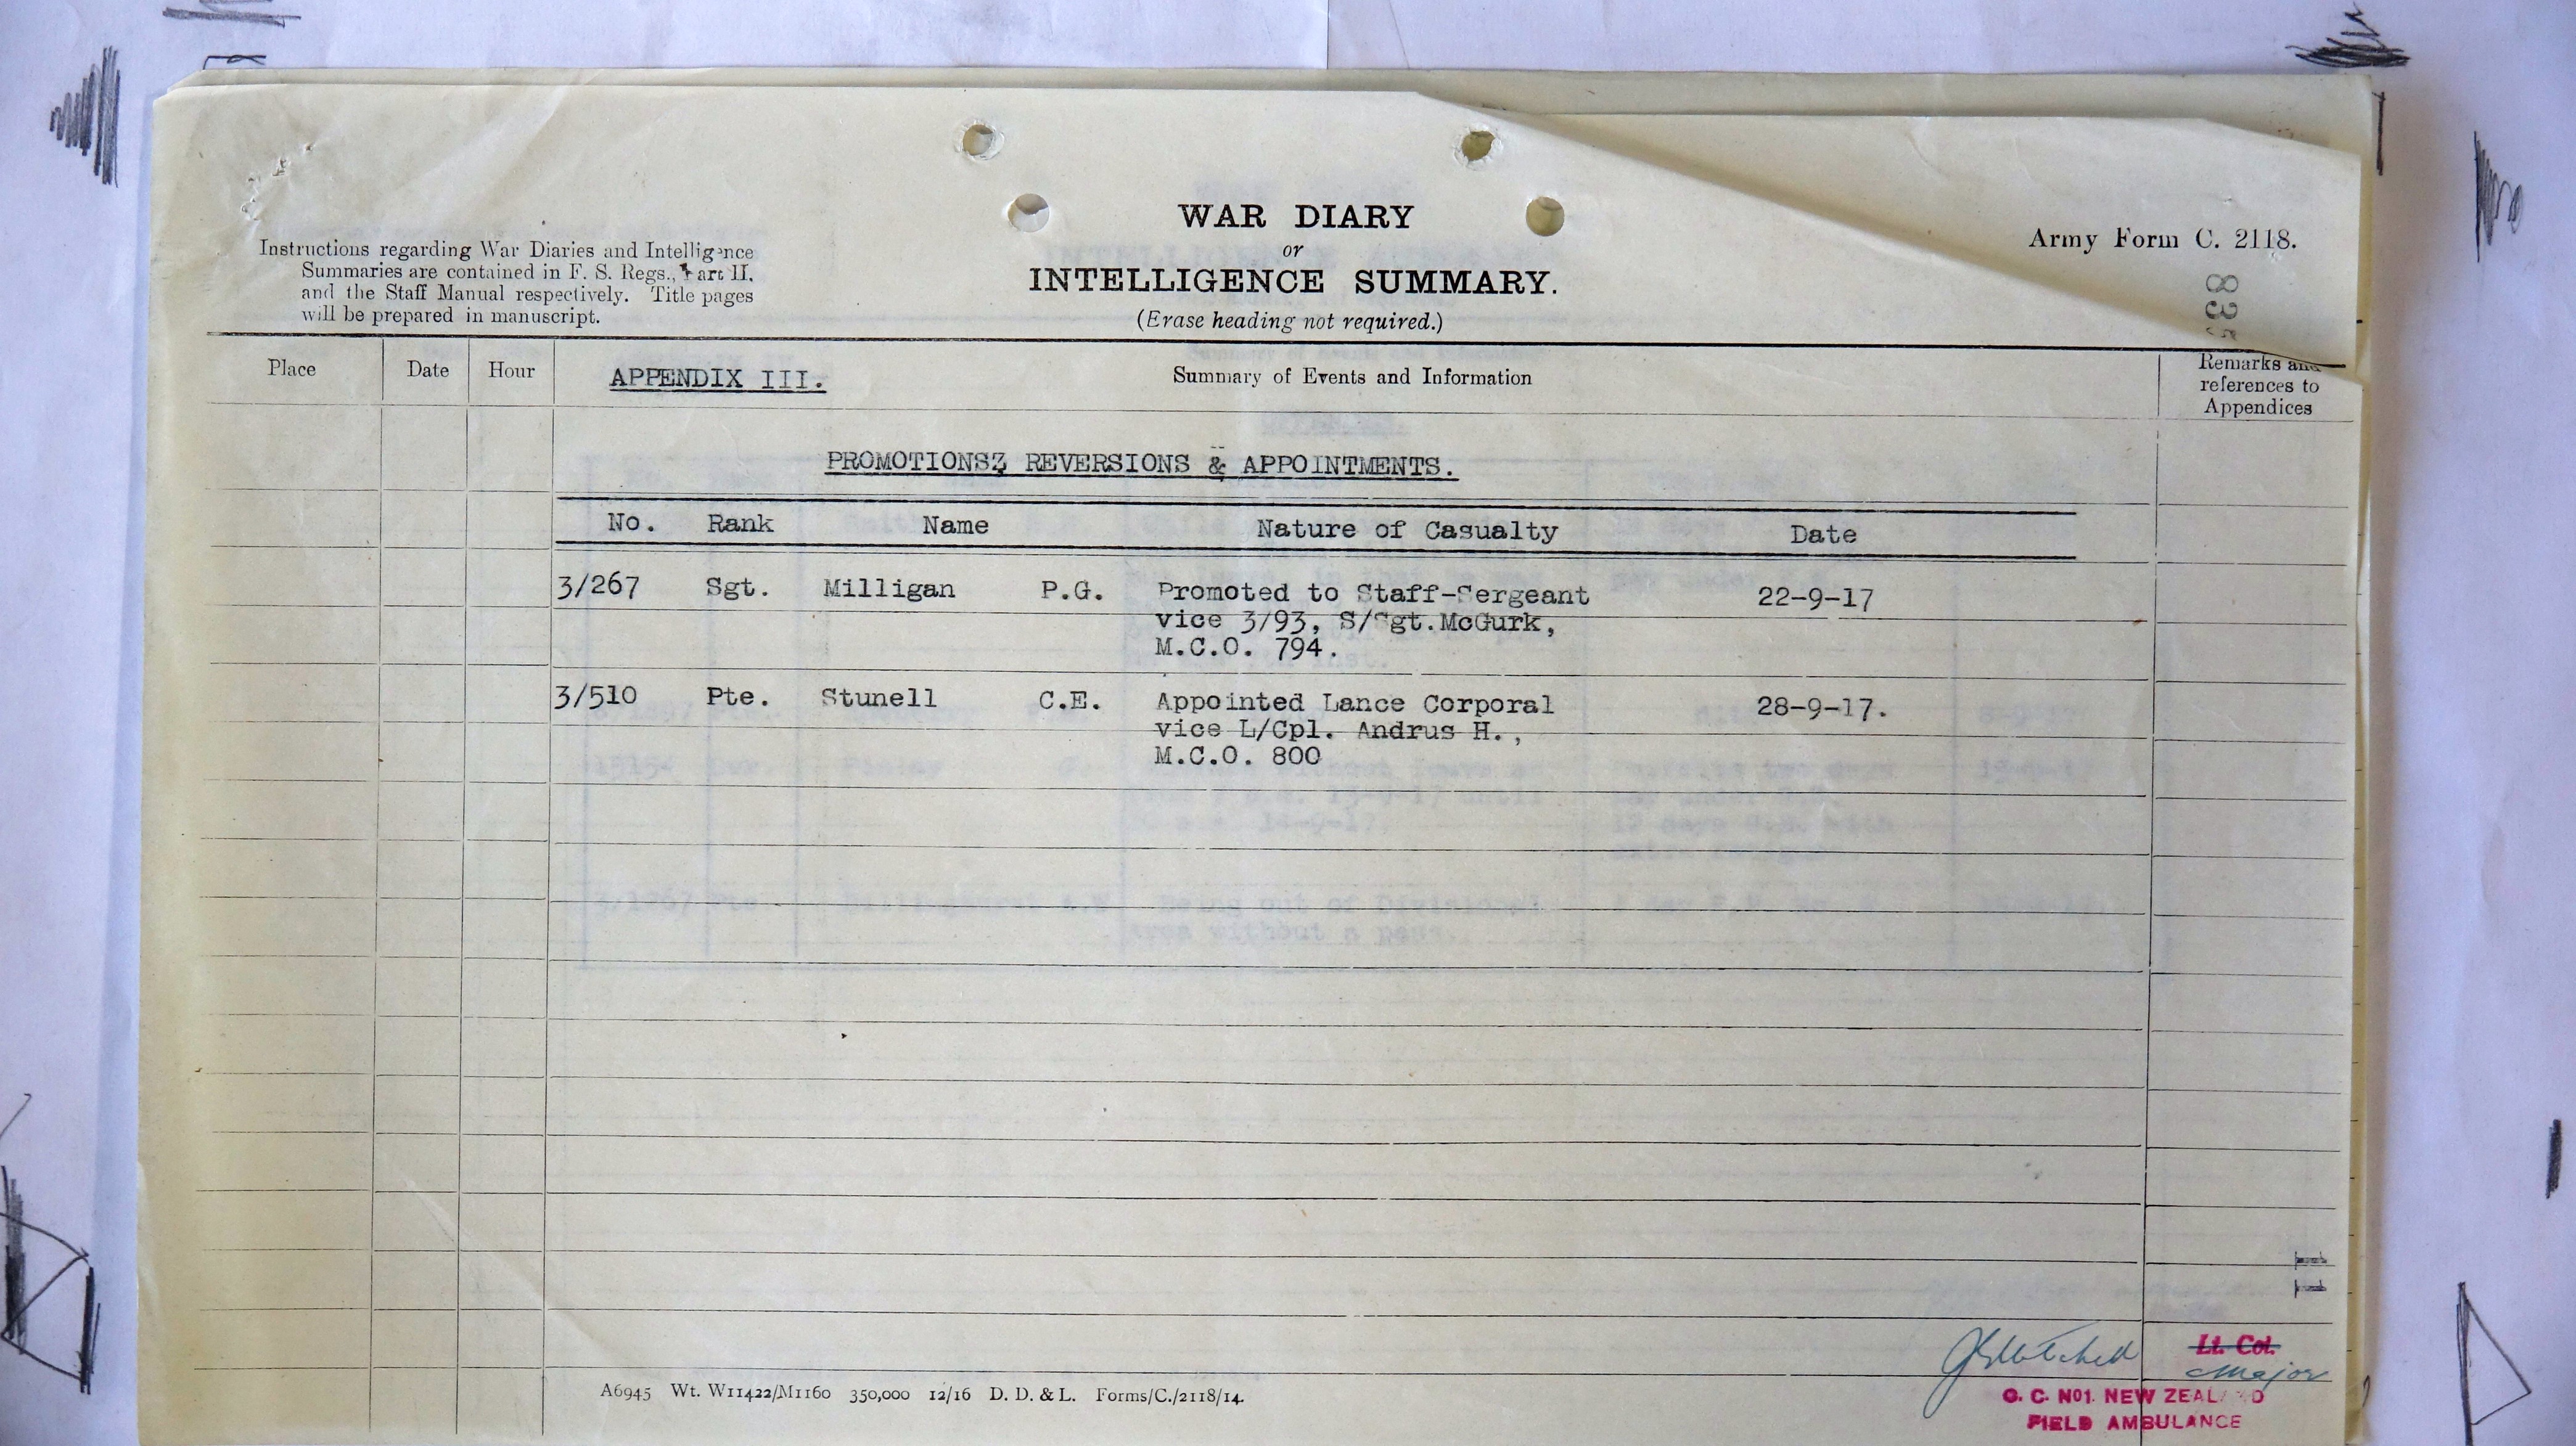 WAR DIARY
or
INTELLIGENCE SUMMARY.
(Erase heading not required.)
Instructions regarding War Diaries and Intelligence
Summaries are contained in F. S. Regs., Part II.
and the Staff Manual respectively. Title pages
will be prepared in manuscript.
Army Form C. 2118.
83
Place Date Hour APPENDIX III. Summary of Events and Information Remarks and
references to
Appendices
PROMOTIONSZ REVERSIONS & APPOINTMENTS.
No. Rank Name Nature of Casualty Date
3/267 Sgt. Milligan P.G. Promoted to Staff-Sergeant 22-9-17
vice 3/93, S/Sgt.McGurk,
M.C.O. 794.
3/510 Pte. Stunell C.E. Appointed Lance Corporal 28-9-17.
vice L/Cpl. Andrus H.,
M.C.O. 800
11
Lt. Col.
Major
O. C. No1. NEW ZEALAND
FIELD AMBULANCE
A6945 Wt. W11422/M1160 350,000 12/16 D. D. & L. Forms/C./2118/14.